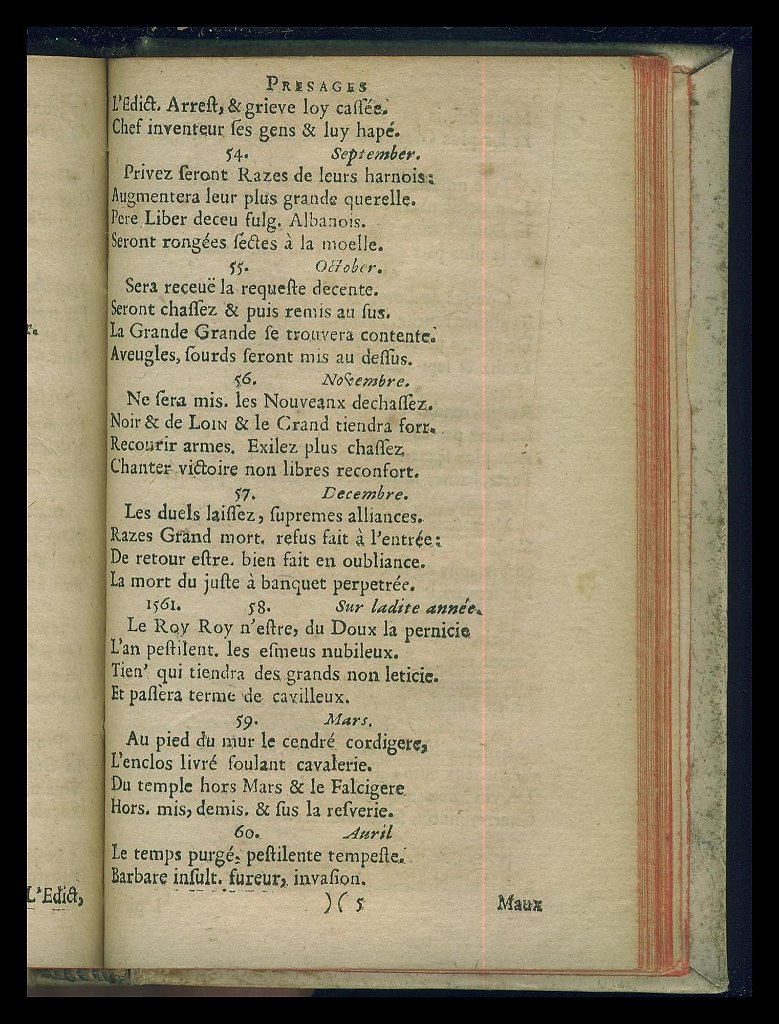 r.
L'Edict,
PRESAGES
L'Edict. Arreſt, & grieve loy caſſée.
Chef inventeur ſes gens & luy hapé.
54. September.
Privez ſeront Razes de leurs harnois:
Augmentera leur plus grande querelle.
Pere Liber deceu fulg. Albanois.
Seront rongées ſectes à la moelle.
55. October.
Sera receuë la requeſte decente.
Seront chaſſez & puis remis au ſus.
La Grande Grande ſe trouvera contente.
Aveugles, ſourds ſeront mis au deſſus.
56. Novembre.
Ne ſera mis. les Nouveanx dechaſſez.
Noir & de LOIN & le Grand tiendra forr.
Recourir armes. Exilez plus chaſſez
Chanter victoire non libres reconfort.
57. Decembre.
Les duels laiſſez, ſupremes alliances.
Razes Grand mort. refus fait à l'entrée:
De retour eſtre. bien fait en oubliance.
La mort du juſte à banquet perpetrée.
1561. 58. Sur ladite année.
Le Roy Roy n'eſtre, du Doux la pernicie
L'an peſtilent. les eſmeus nubileux.
Tien' qui tiendra des grands non leticie.
Et paſſera terme de cavilleux.
59. Mars.
Au pied du mur le cendré cordigere,
L'enclos livré foulant cavalerie.
Du temple hors Mars & le Falcigere
Hors. mis, demis. & ſus la reſverie.
60. Auril
Le temps purgé, peſtilente tempeſte.
Barbare inſult. fureur, invaſion.
)( 5 Maux